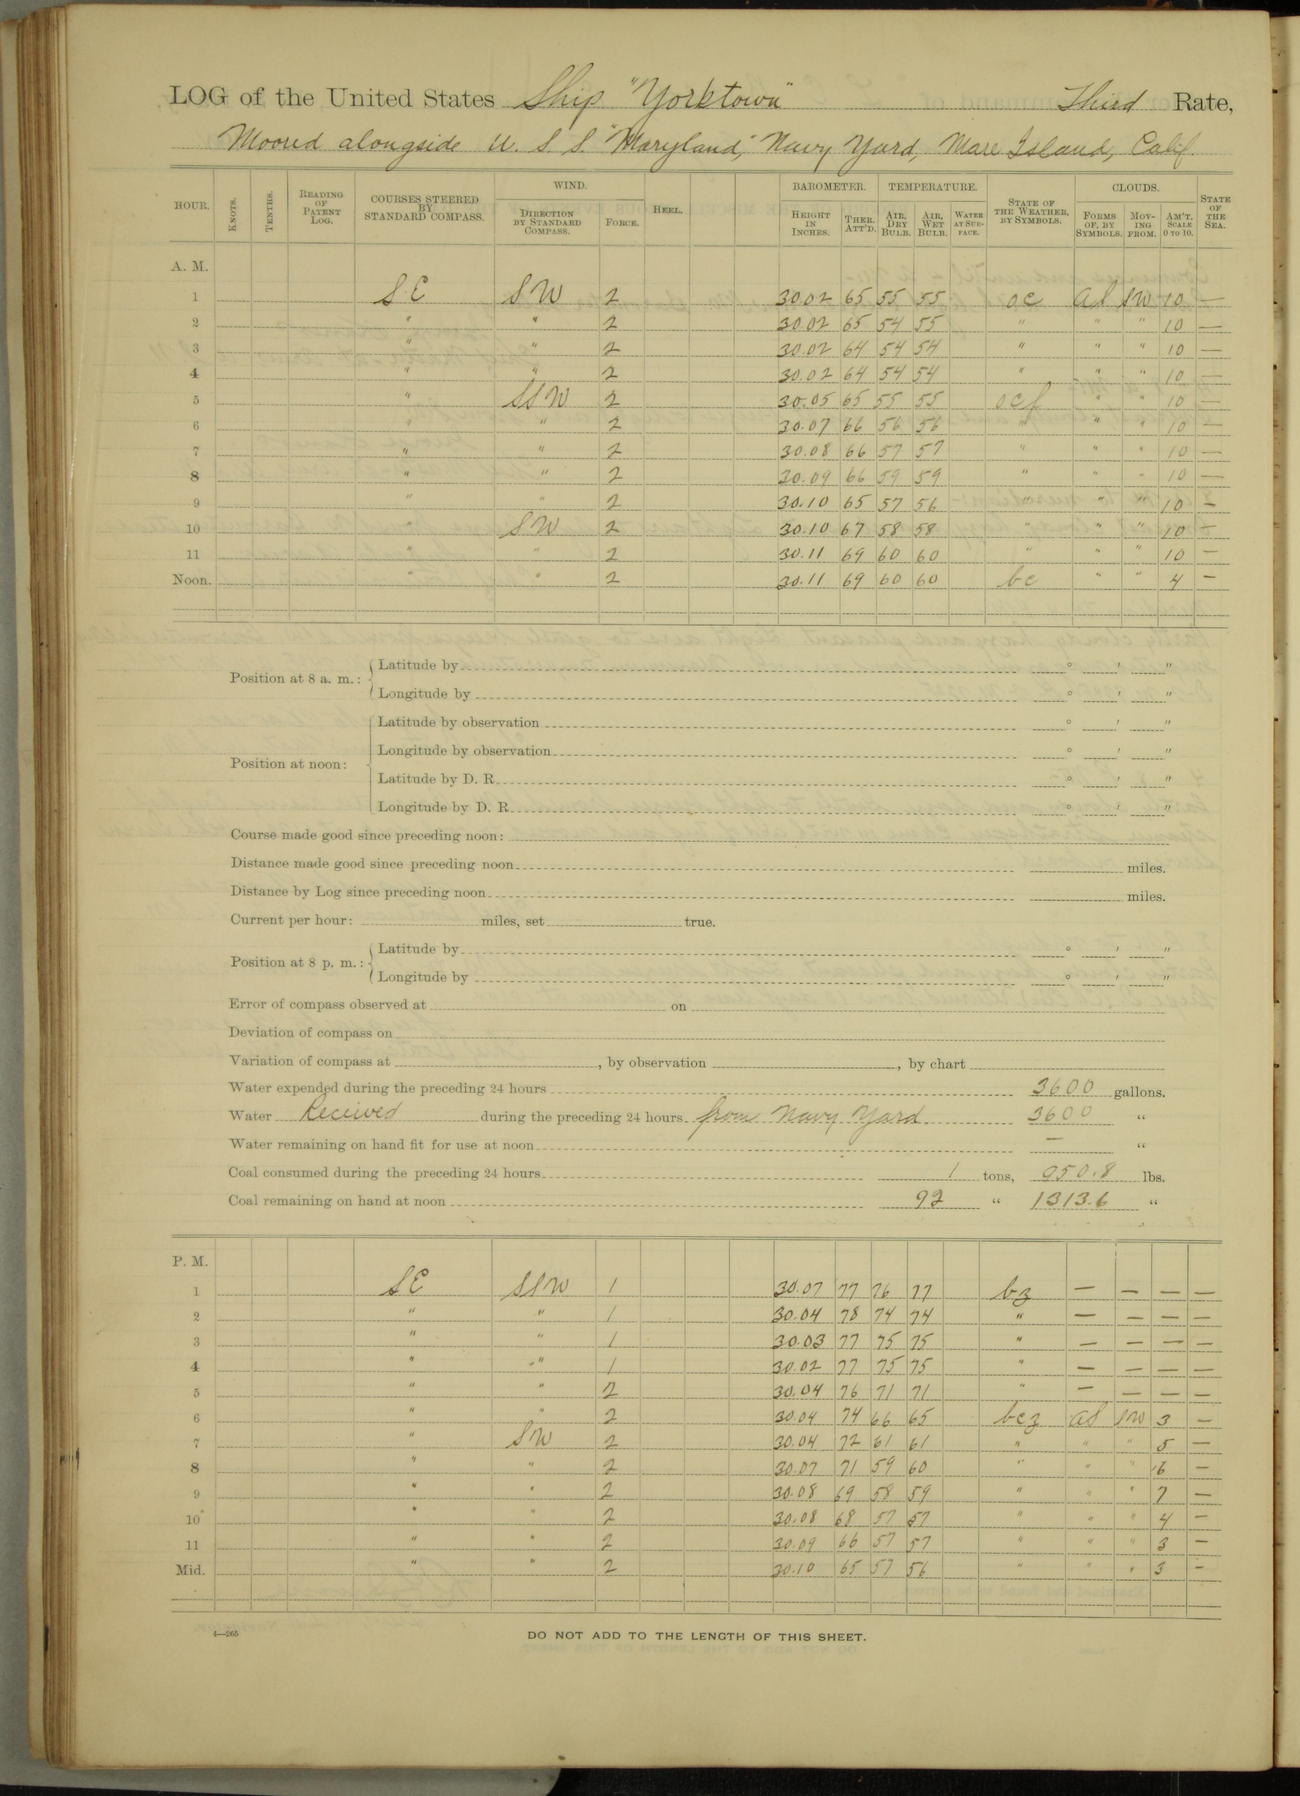 LOG of the United States Ship "Yorktown" Third Rate,
Moored alongside U. S. S. "Maryland," Navy Yard, Mare Island, Calif.
HOUR. KNOTS. TENTHS. READING OF PATENT LOG. COURSES STEERED BY STANDARD COMPASS. WIND. DIRECTION BY STANDARD COMPASS. FORCE. HEEL. BAROMETER. HEIGHT IN INCHES. THER. ATT'D. TEMPERATURE. AIR, DRY BULB. AIR, WET BULB. WATER AT SURFACE. STATE OF THE WEATHER, BY SYMBOLS. CLOUDS. FORMS OF, BY SYMBOLS. MOVING FROM. AM'T. SCALE 0 TO 10. STATE OF THE SEA.
A. M.
1 SE SW 2 30.02 65 55 55 oc as SW 10 —
2 " " 2 30.02 65 54 55 " " " 10 —
3 " " 2 30.02 64 54 54 " " " 10 —
4 " " 2 30.02 64 54 54 " " " 10 —
5 " SSW 2 30.05 65 55 55 ocf " " 10 —
6 " " 2 30.07 66 56 56 " " " 10 —
7 " " 2 30.08 66 57 57 " " " 10 —
8 " " 2 30.09 66 59 59 " " " 10 —
9 " " 2 30.10 65 57 56 " " " 10 —
10 " SW 2 30.10 67 58 58 " " " 10 —
11 " " 2 30.11 69 60 60 " " " 10 —
Noon. " " 2 30.11 69 60 60 bc " " 4 —
Position at 8 a. m.: Latitude by ° ′ ″
Longitude by ° ′ ″
Position at noon: Latitude by observation ° ′ ″
Longitude by observation ° ′ ″
Latitude by D. R. ° ′ ″
Longitude by D. R. ° ′ ″
Course made good since preceding noon:
Distance made good since preceding noon miles.
Distance by Log since preceding noon miles.
Current per hour: miles, set true.
Position at 8 p. m.: Latitude by ° ′ ″
Longitude by ° ′ ″
Error of compass observed at on
Deviation of compass on
Variation of compass at , by observation , by chart
Water expended during the preceding 24 hours 3600 gallons.
Water Received during the preceding 24 hours from Navy Yard. 3600 "
Water remaining on hand fit for use at noon — "
Coal consumed during the preceding 24 hours 1 tons, 950.8 lbs.
Coal remaining on hand at noon 92 " 1313.6 "
P. M.
1 SE SSW 1 30.07 77 76 77 bz — — — —
2 " " 1 30.04 78 74 74 " — — — —
3 " " 1 30.03 77 75 75 " — — — —
4 " " 1 30.02 77 75 75 " — — — —
5 " " 2 30.04 76 71 71 " — — — —
6 " " 2 30.04 74 66 65 bcz as SW 3 —
7 " SW 2 30.04 72 61 61 " " " 5 —
8 " " 2 30.07 71 59 60 " " " 6 —
9 " " 2 30.08 69 58 59 " " " 7 —
10 " " 2 30.08 68 57 57 " " " 4 —
11 " " 2 30.09 66 57 57 " " " 3 —
Mid. " " 2 30.10 65 57 56 " " " 3 —
4—265
DO NOT ADD TO THE LENGTH OF THIS SHEET.